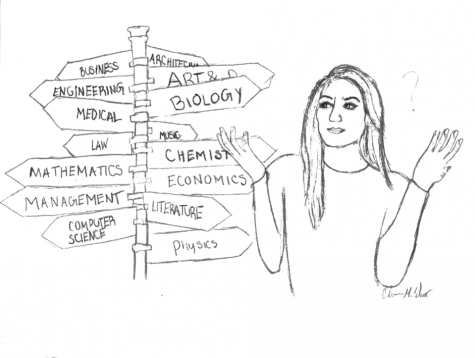 BUSINESS
ENGINEERING
MEDICAL
LAW
MATHEMATICS
MANAGEMENT
COMPUTER
SCIENCE
ART &
BIOLOGY
MUSIC
CHEMIST
ECONOMICS
LITERATURE
Physics
?